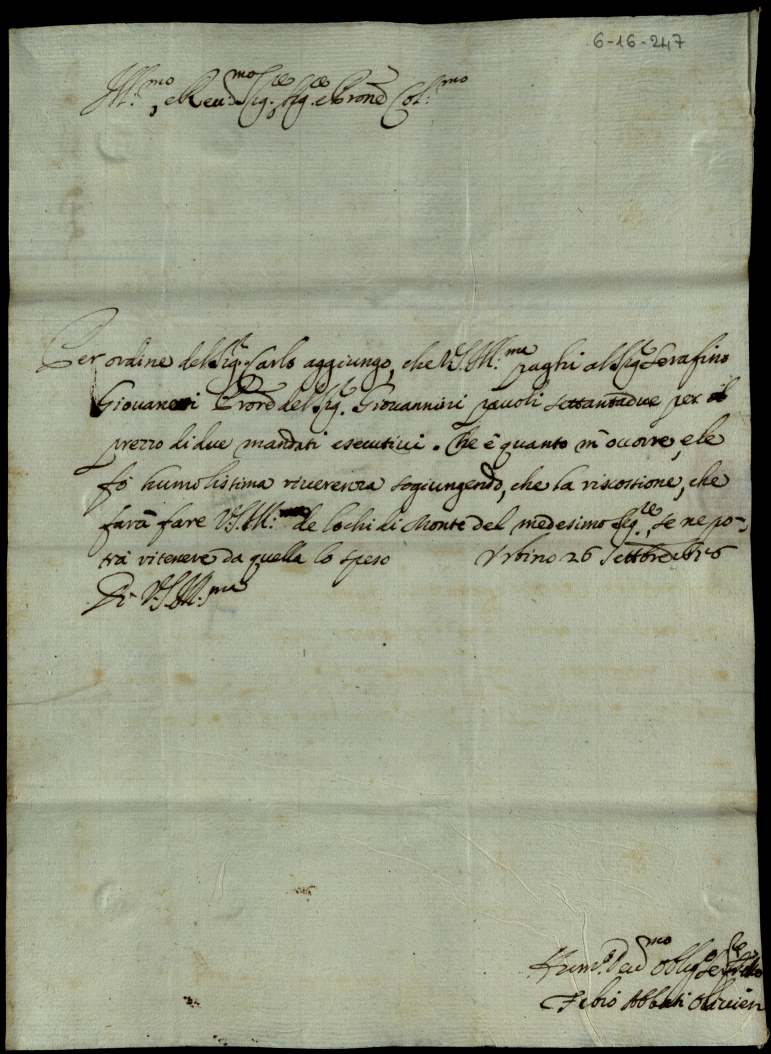 6-16-247
Ill:mo, e Reu:mo Sig.re, Sig.re e Prone Col:mo
Per ordine del Sig.r Carlo aggiungo, che V.S. Ill:ma paghi al Sig.r Serafino
Giovanetti Prore del Sig.r Giovannini pavoli settantadue per il
prezzo di due mandati esecutiui. Che è quanto m'occorre, e le
fò humilissima riuerenza sogiungendo, che la riscossione, che
farà fare V.S. Ill:ma de lochi di Monte del medesimo Sig.re, se ne po-
trà ritenere da quella lo speso Vrbino 26 Settbre
Di V.S. Ill:ma
Hum.o Deu.mo Oblig.o Ser.re
Fabio Abbati Oliuieri